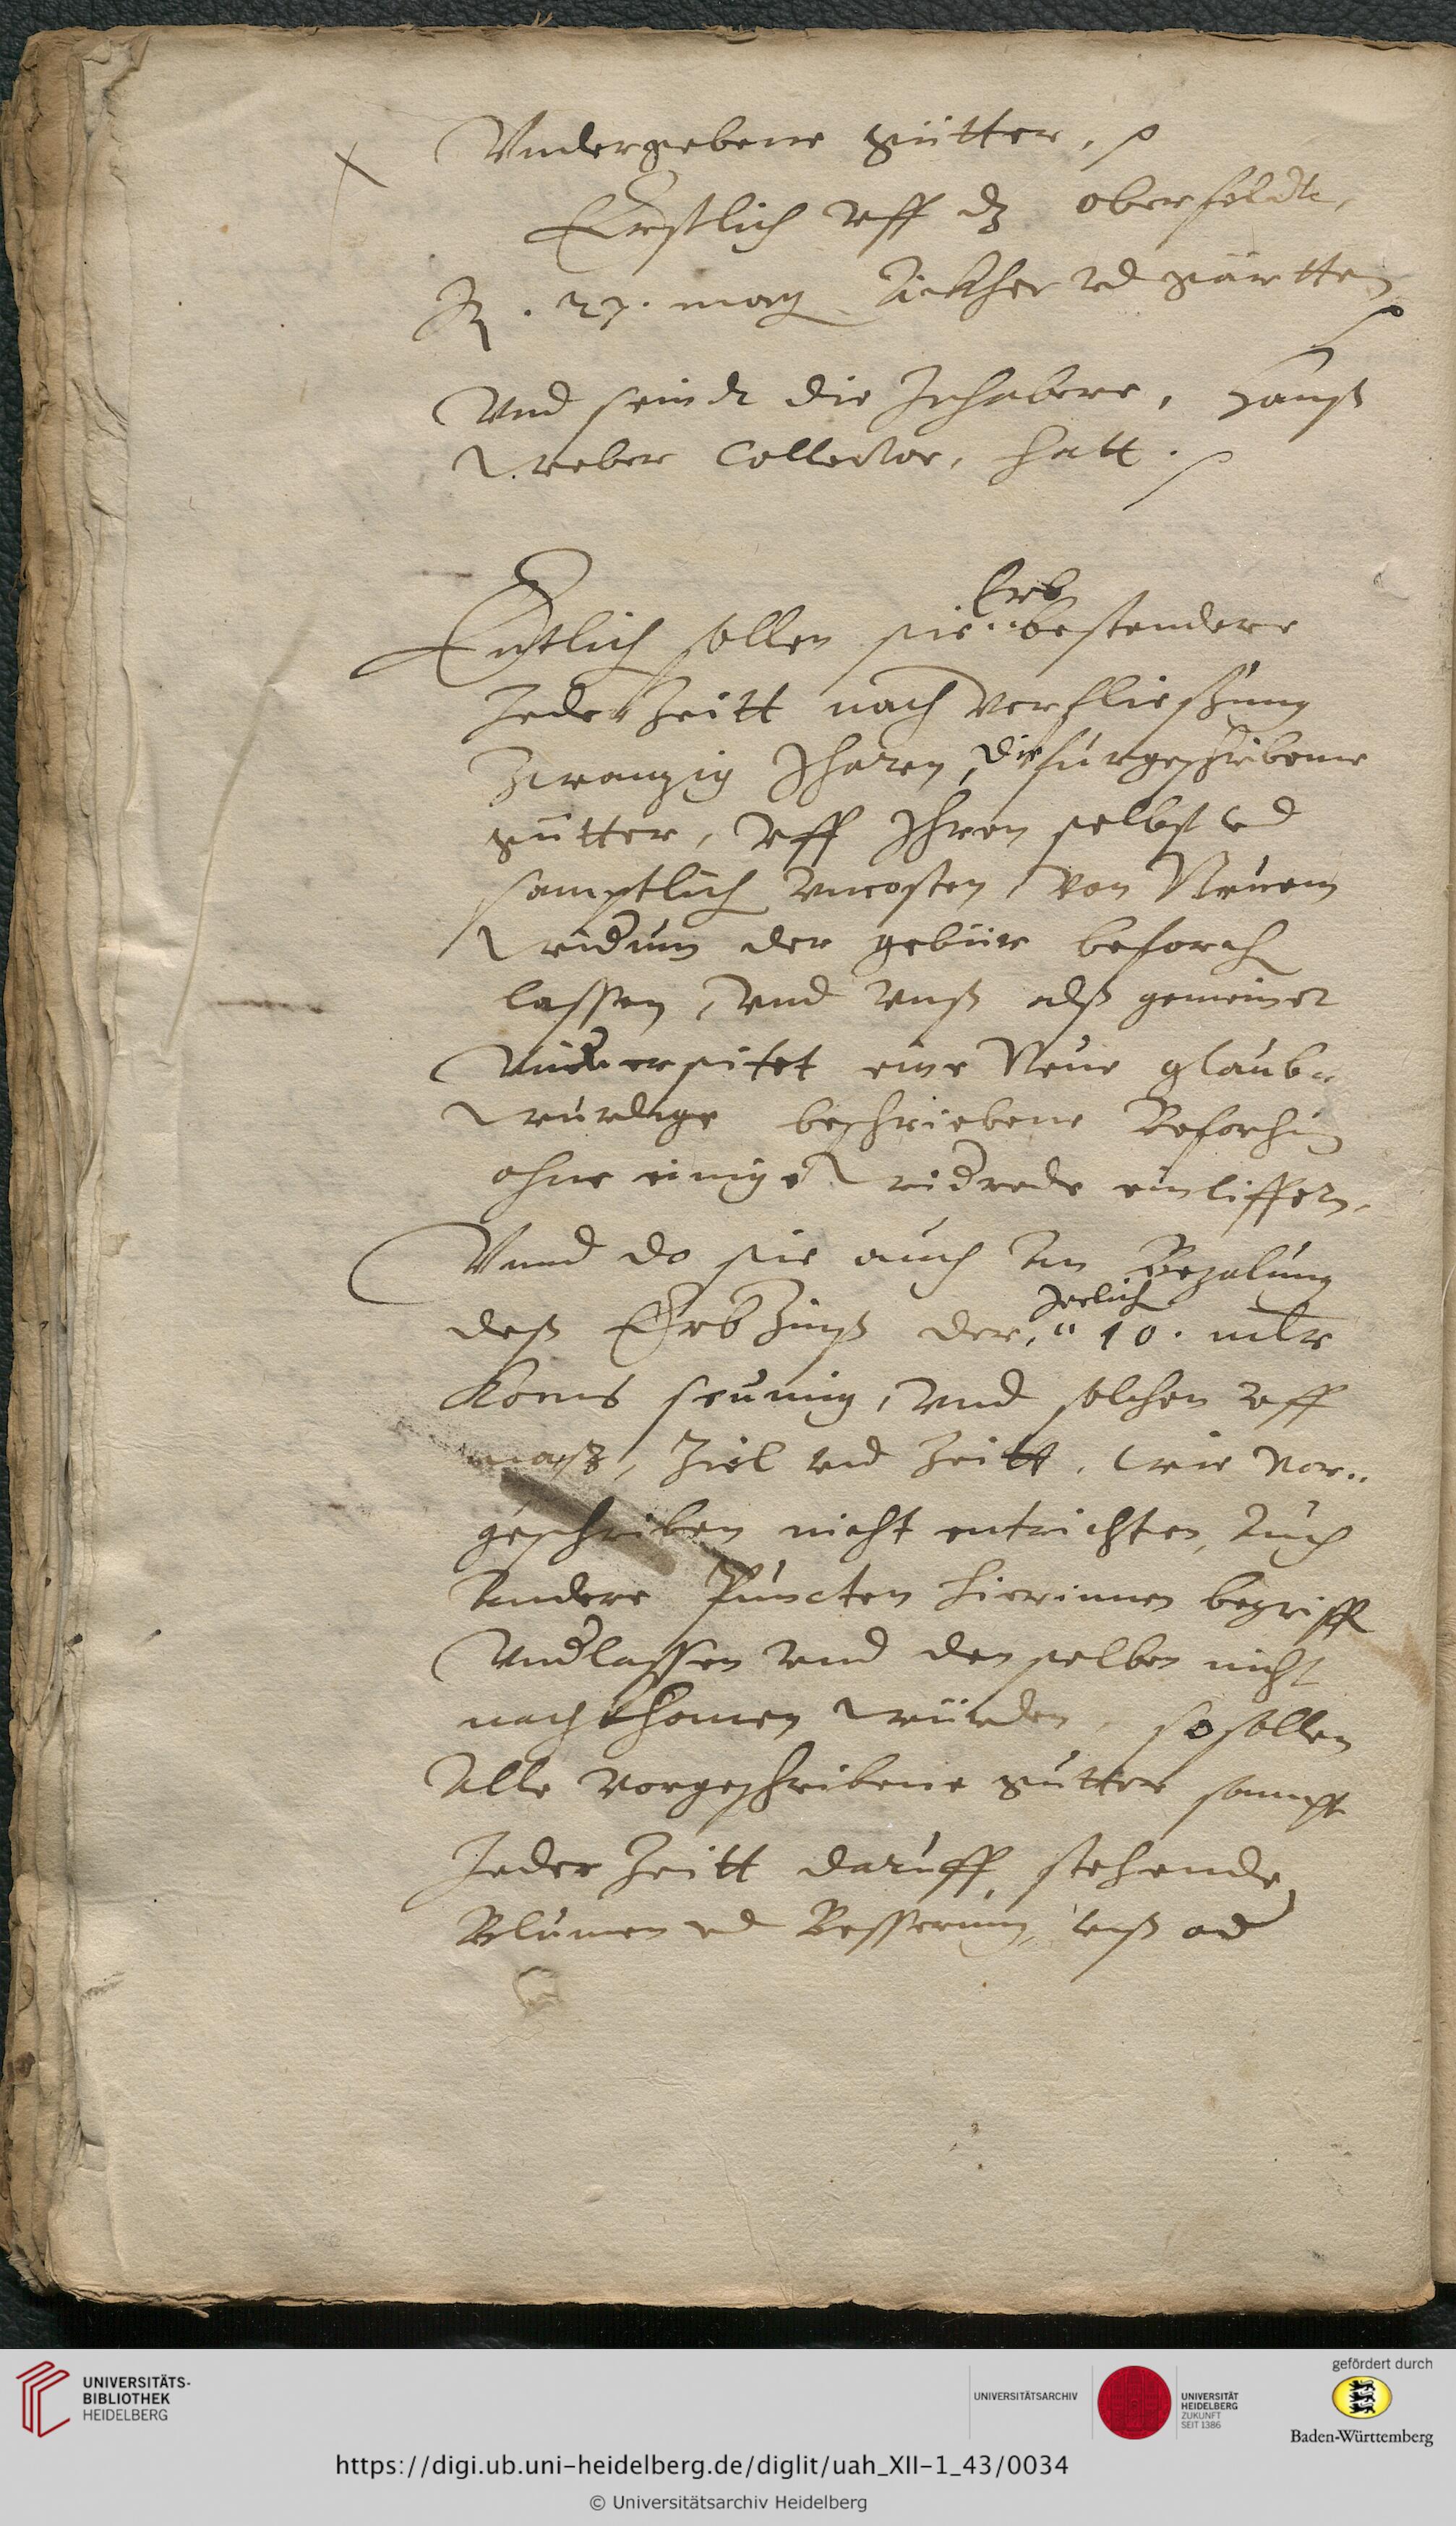 Vndergebene gütter.
Erstlich vff dz oberfeldt,
27. morg Äckher vnd gärtten
Vnd seindt die Inhabere, Hanß
Weber Collector, hatt.
Erb
Entlich sollen sie bestendere
Jeder Zeitt nach verfließung
Zwanzig Jharen, die fürgeschribene
gütter, vff Ihren selbst vnd
samptlich vncosten, von Neuem
widum der gebüer beforch
lassen, vnd vnß alß gemeiner
Vniuersitet eine Neue glaub„
würdige beschriebene Beforchung
ohne einige widrede einliffern.
Vnnd do sie auch An Bezalung
Jerlich
deß Erb Zinß der, „ 10. mltr
Korns seumig, vnd solchen vff
maß, Ziel vnd Zeitt, wie vor„
geschriben nicht entrichten, Auch
Andere Puncten hierinnen begriffen
Vnderlassen vnd denselben nicht
nachkhomen würden, so sollen
Alle vorgeschribene gütter sampt
Jeder Zeitt daruff, stehende
Blumen vnd Besserung, vnß oder
UNIVERSITÄTS-
BIBLIOTHEK
HEIDELBERG
UNIVERSITÄTSARCHIV
UNIVERSITÄT
HEIDELBERG
ZUKUNFT
SEIT 1386
gefördert durch
Baden-Württemberg
https://digi.ub.uni-heidelberg.de/diglit/uah_XII-1_43/0034
© Universitätsarchiv Heidelberg